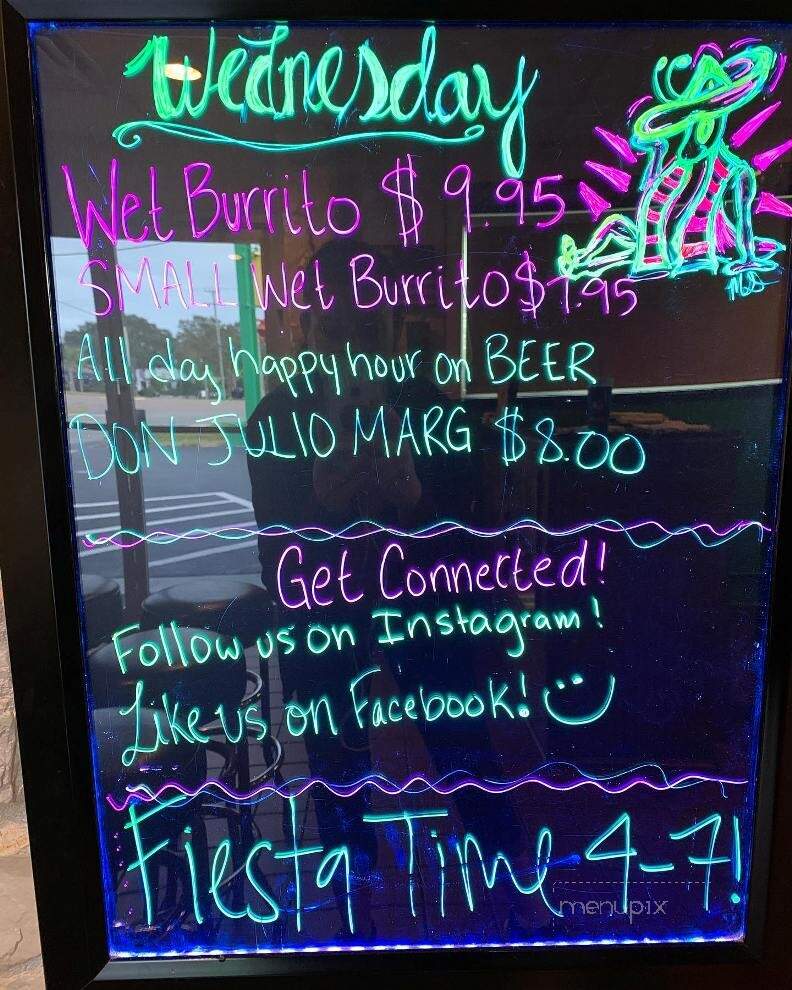 Wednesday
Wet Burrito $9.95
SMALL Wet Burrito $7.95
All day happy hour on BEER
DON JULIO MARG $8.00
Get Connected!
Follow us on Instagram!
Like us on Facebook!
Fiesta Time 4-7!
menupix